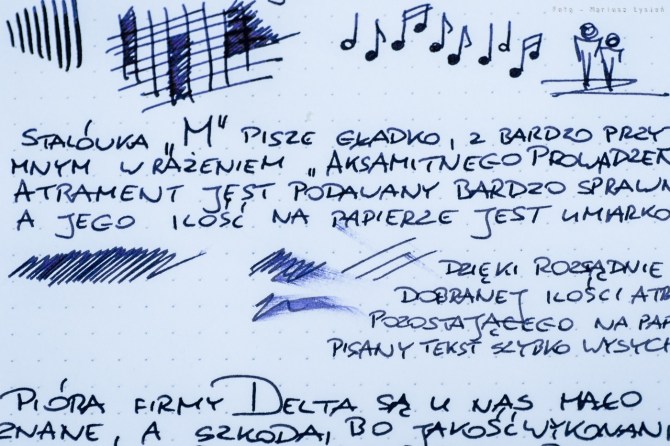 Foto - Mariusz Łysień
STALÓWKA „M" PISZE GŁADKO, Z BARDZO PRZY
MNYM WRAŻENIEM „AKSAMITNEGO PROWADZEN
ATRAMENT JEST PODAWANY BARDZO SPRAWN
A JEGO ILOŚĆ NA PAPIERZE JEST UMIARKO
DZIĘKI ROZSĄDNIE
DOBRANEJ ILOŚCI ATR
POZOSTAJĄCEGO NA PAP
PISANY TEKST SZYBKO WYSYCH
PIÓRA FIRMY DELTA SĄ U NAS MAŁO
ZNANE, A SZKODA, BO JAKOŚĆ WYKONANI